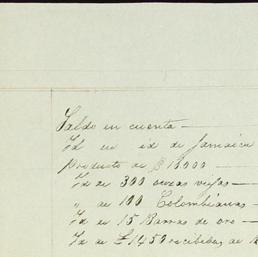 Saldo en cuenta —
Id en id de Jamaica
Producto de $ 10000 —
Id de 300 onzas viejas —
„ de 100 Colombianas —
Id de 15 Barras de oro —
Id de £1450 recibidas de